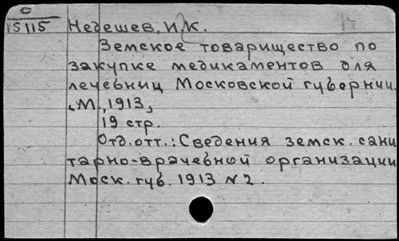 О
15115
Недешев, И.К.
Земское товарищество по
закупке медикаментов для
лечебниц Московской губернии.
М., 1913,
19 стр.
Отд.отт.: Сведения земск. сани
тарно-врачебной организации
Моск. губ. 1913 N 2.